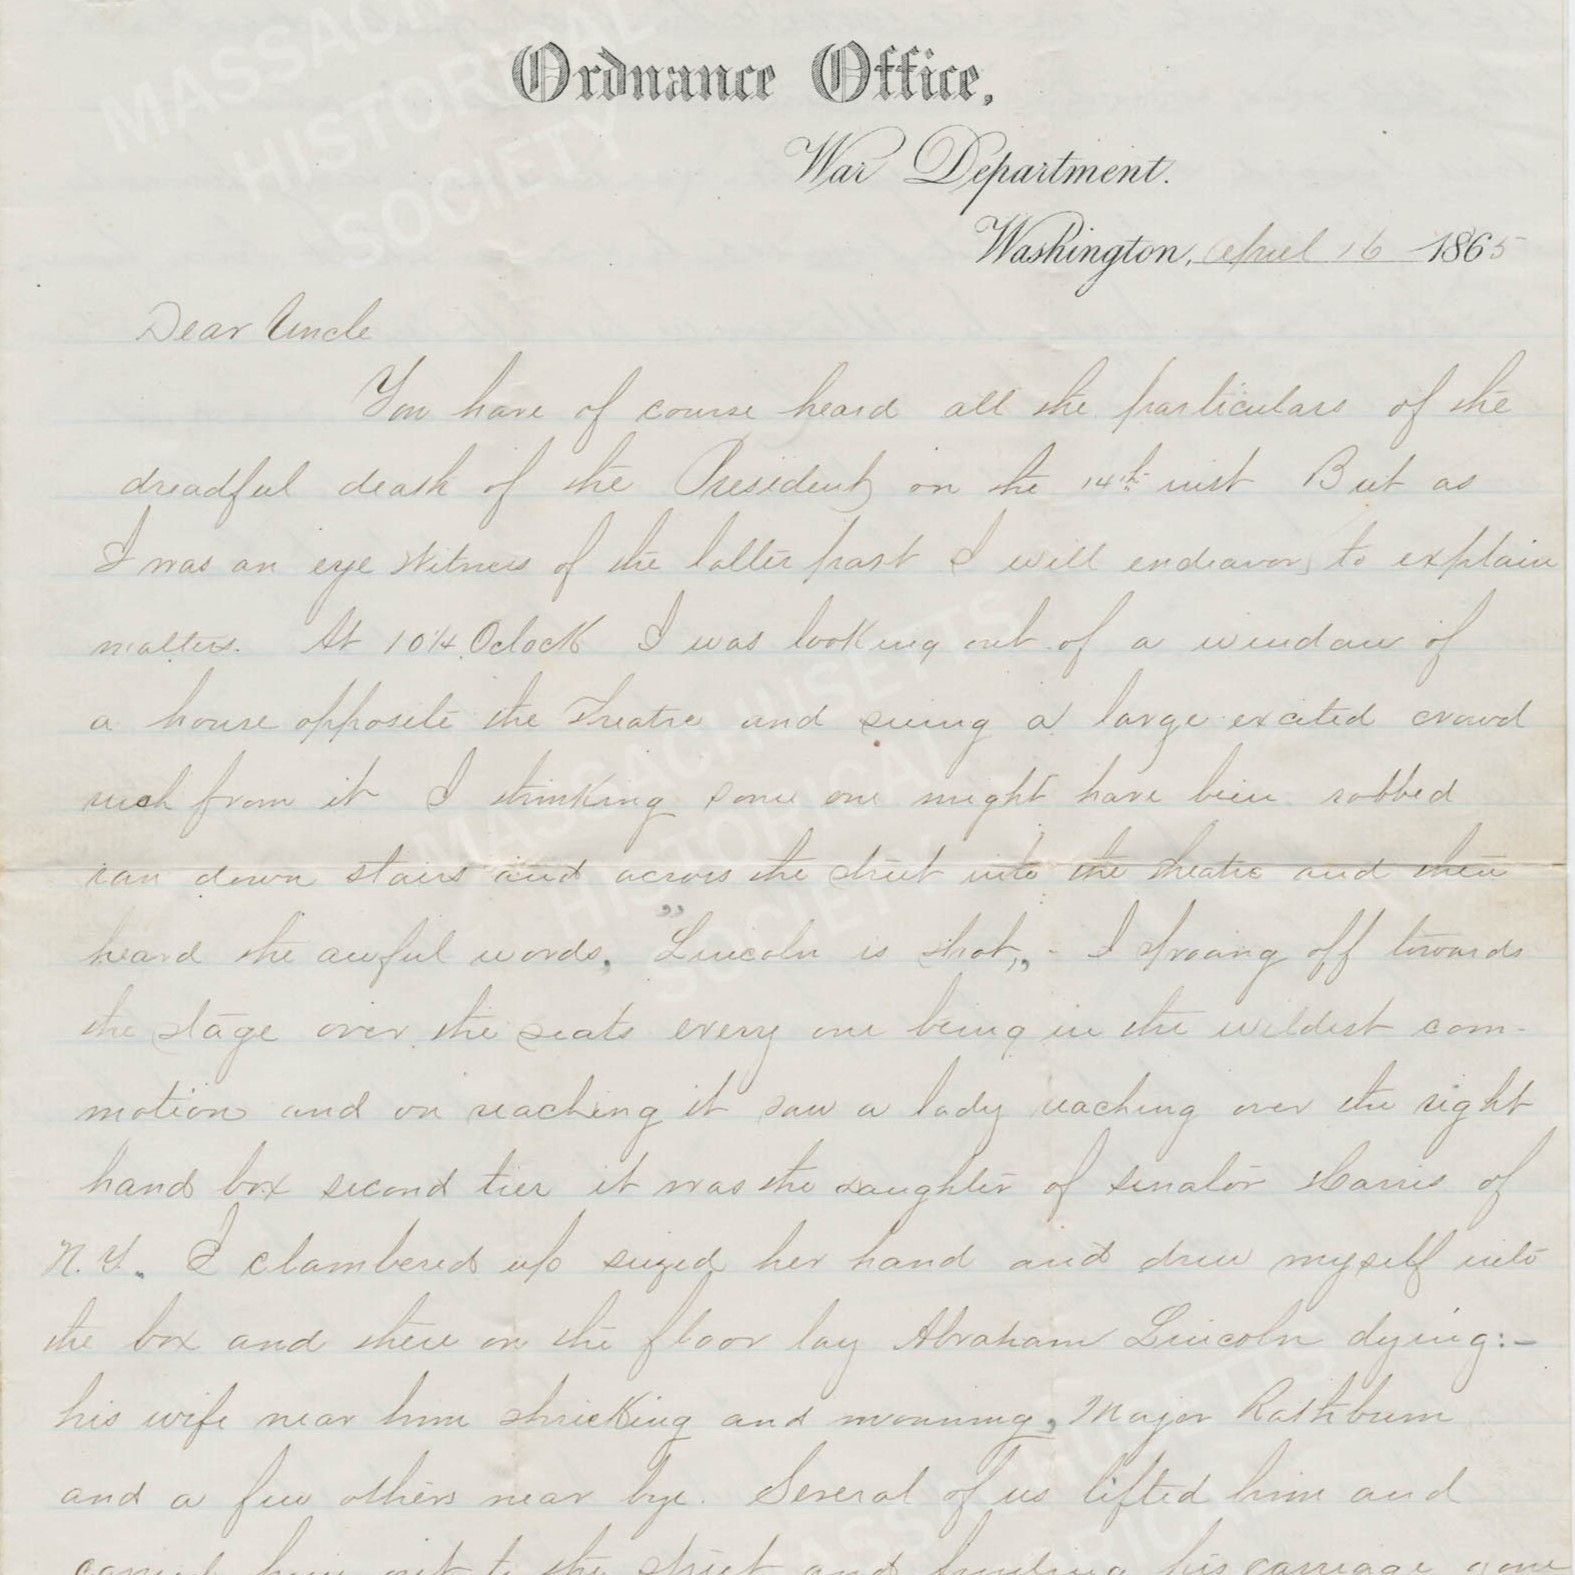 MASSACHUSETTS
HISTORICAL
SOCIETY
Ordnance Office,
War Department.
Washington, April 16 1865
Dear Uncle
You have of course heard all the particulars of the
dreadful death of the President, on the 14th inst But as
I was an eye witness of the latter part I will endeavor, to explain
matters. At 10 1/4 Oclock I was looking out of a window of
a house opposite the Theatre and seeing a large excited crowd
rush from it I thinking some one might have been robbed
ran down stairs and across the street into the theatre and then
heard the awful words, "Lincoln is shot," - I sprang off towards
the stage over the seats every one being in the wildest com-
motion and on reaching it saw a lady reaching over the right
hand box second tier it was the daughter of Senator Harris of
N.Y. I clambered up seized her hand and drew myself into
the box and there on the floor lay Abraham Lincoln dying:-
his wife near him shrieking and mourning, Major Rathburn
and a few others near bye. Several of us lifted him and
carried him out to the street and finding his carriage gone